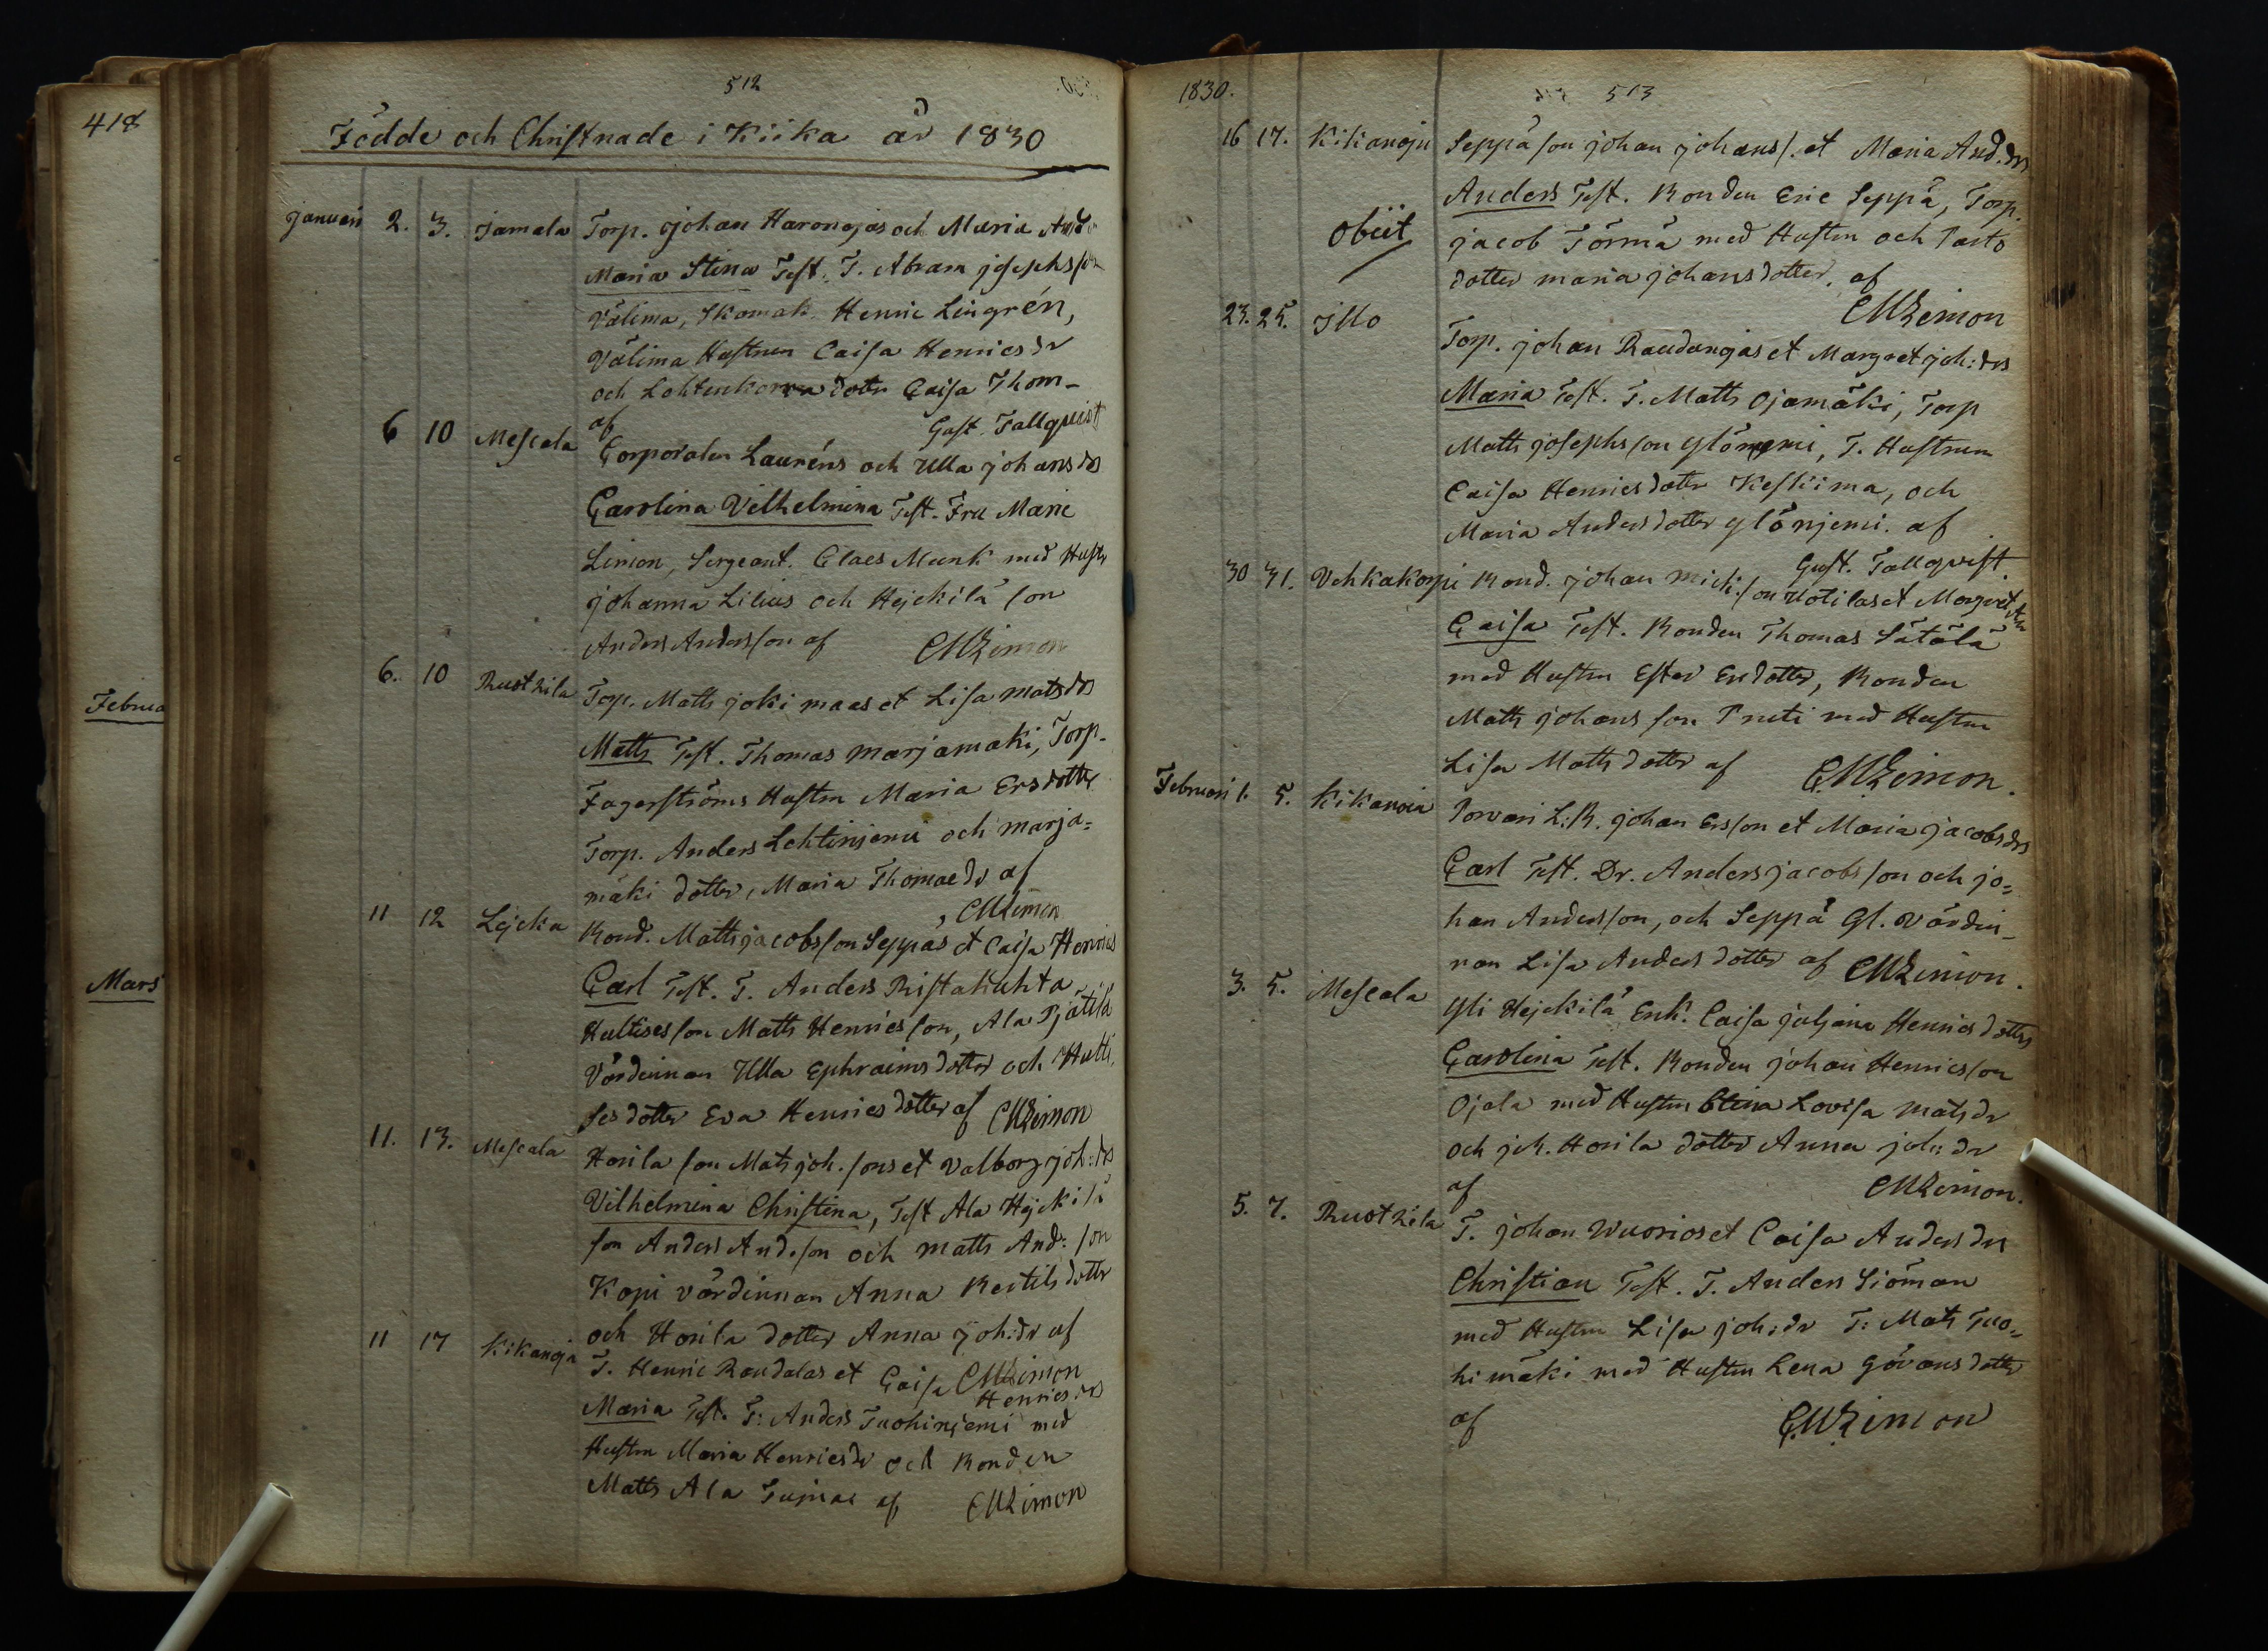 418
Februa
Mars
512
Födde och Christnade i Kiika år 1830
Januari 2. 3. Jamala Torp. Johan Haronojas och Maria And
Maria Stina Test. T. Abram Josephsson
Välima, Skomak. Henric Lingrén,
Välima Hustrun Caisa Henricsdr
och Lohtenkorva dottr Caisa Thom-
af Gust. Fallqueist
6 10 Mescala Corporalen Lauréns och Ulla Johansdrs
Carolina Vilhelmina Test. Fru Marie
Limon, Sergeant. Claes Munk med Hustr
Johanna Lilius och Hejckilä son
Anders Andersson af CMLimon
6. 10 Ruotzila Torp. Matts Jokimaas et Lisa Matsdrs
Matts Test. Thomas Marjamaki, Torp.
Fagerströms Hustru Maria Ersdotter
Torp. Anders Lehtinjemi och Marja=
mäki dotter, Maria Thomaedr af
CMLimon
11 12 Lejcka Bond. Matts Jacobsson Seppäs et Caisa Henrics
Carl Test. T. Anders Ristahuhta
Hultises son Matts Henricsson, Ala Pjätilä
Värdinnan Ulla Ephraimsdotter och Hulti
ses dotter Eva Henricsdotter af CMLimon
11. 13. Mescala Horila son Mats Joh. sons et Valborg Joh:drs
Vilhelmina Christina, Test Ala Hejckilä
son Anders And.son och Matts And: son
Kopi värdinnan Anna Bertilsdottr
och Horila dotter Anna Joh:dr af
CMLimon
11 17 Kikanoja T. Henric Raudalas et Caisa Henricsdrs
Maria Test. T: Anders Tuohinjemi med
Hustru Maria Henricsdr och Bonden
Matts Ala af CMLimon
1830. 513
16 17. Kikanoju Seppä son Johan Johans s. et Maria And.drs
Anders Test. Bonden Eric Seppä, Torp.
Obiit Jacob Törmä med Hustru och Pasto
dotter Maria Johansdotter. af
CMLimon
23. 25. Illo Torp. Johan Raudanojas et Margaet Joh:drs
Maria Test. T. Matts Ojamäki, Torp
Matts Josephsson Ylönjemi, T. Hustrun
Caisa Henricsdotter Keskiima, och
Maria Andersdotter Ylönjemi. af
Gust. Fallqvist.
30 31. Vehkakorpi Bond. Johan Mich:son Uotilas et Margret
Caisa Test. Bonden Thomas Sätälä
med Hustru Ester Ersdotter, Bonden
Matts Johansson Pruti med Hustru
Lisa Mattsdotter af CMLimon.
Februari 1. 5. Kikanoia Porvari L:B. Johan Ersson et Maria Jacobsdrs
Carl Test. Dr. Anders Jacobsson och Jo=
han Andersson, och Seppä Gl. Värdin-
nan Lisa Andersdotter af CMLimon.
3. 5. Mescala Yli Hejckilä Enk. Caisa Juljana Henricsdotters
Carolina Test. Bonden Johan Henricsson
Ojala med Hustru Stina Lovisa Matsdr
och Joh. Horila dotter Anna Joh:dr
af CMLimon.
5. 7. Ruotzila T. Johan Wuorios et Caisa Andersdrs
Christian Test. T. Anders Siöman
med Hustru Lisa Joh:dr T: Mats Tuo=
himäki med Hustru Lena Göransdotter
af CMLimon